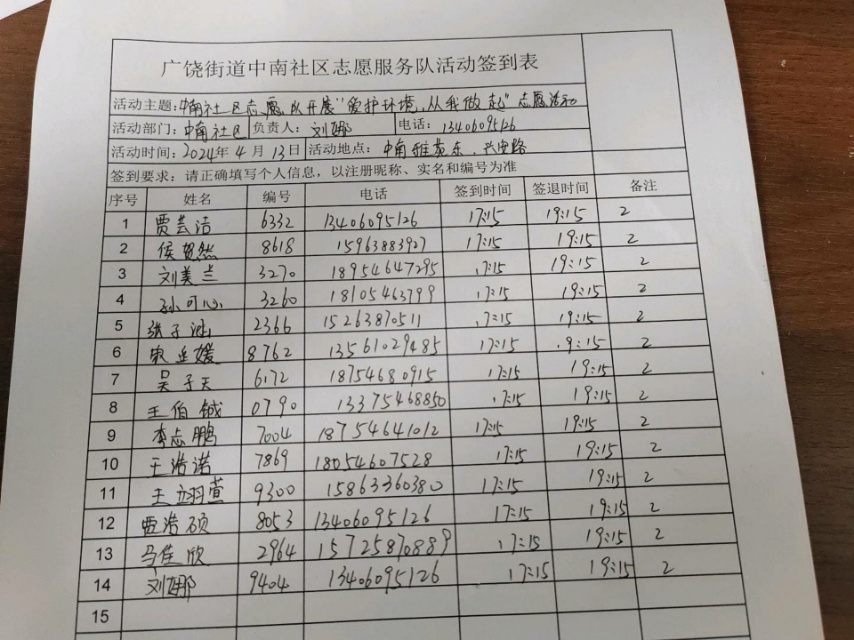 广饶街道中南社区志愿服务队活动签到表
活动主题：中南社区志愿队开展"爱护环境，从我做起"志愿活动
活动部门：中南社区 负责人：刘娜 电话：13406095126
活动时间：2024年4月13日 活动地点：中南雅苑东，兴安路
签到要求：请正确填写个人信息，以注册昵称、实名和编号为准
序号 姓名 编号 电话 签到时间 签退时间 备注
1 贾芸洁 6332 13406095126 17:15 19:15 2
2 侯贺然 8618 15963883927 17:15 19:15 2
3 刘美兰 3270 18954647295 17:15 19:15 2
4 孙可心 3260 18105463799 17:15 19:15 2
5 张子涵 2366 15263870511 17:15 19:15 2
6 8762 13561029485 17:15 19:15 2
7 吴子天 6172 18754680915 17:15 19:15 2
8 王伯钺 0790 13375468850 17:15 19:15 2
9 李志鹏 7004 18754641012 17:15 19:15 2
10 王浩诺 7869 18054607528 17:15 19:15 2
11 王翊萱 9300 15863360380 17:15 19:15 2
12 贾浩硕 8053 13406095126 17:15 19:15 2
13 马佳欣 2964 15725870889 17:15 19:15 2
14 刘娜 9404 13406095126 17:15 19:15 2
15